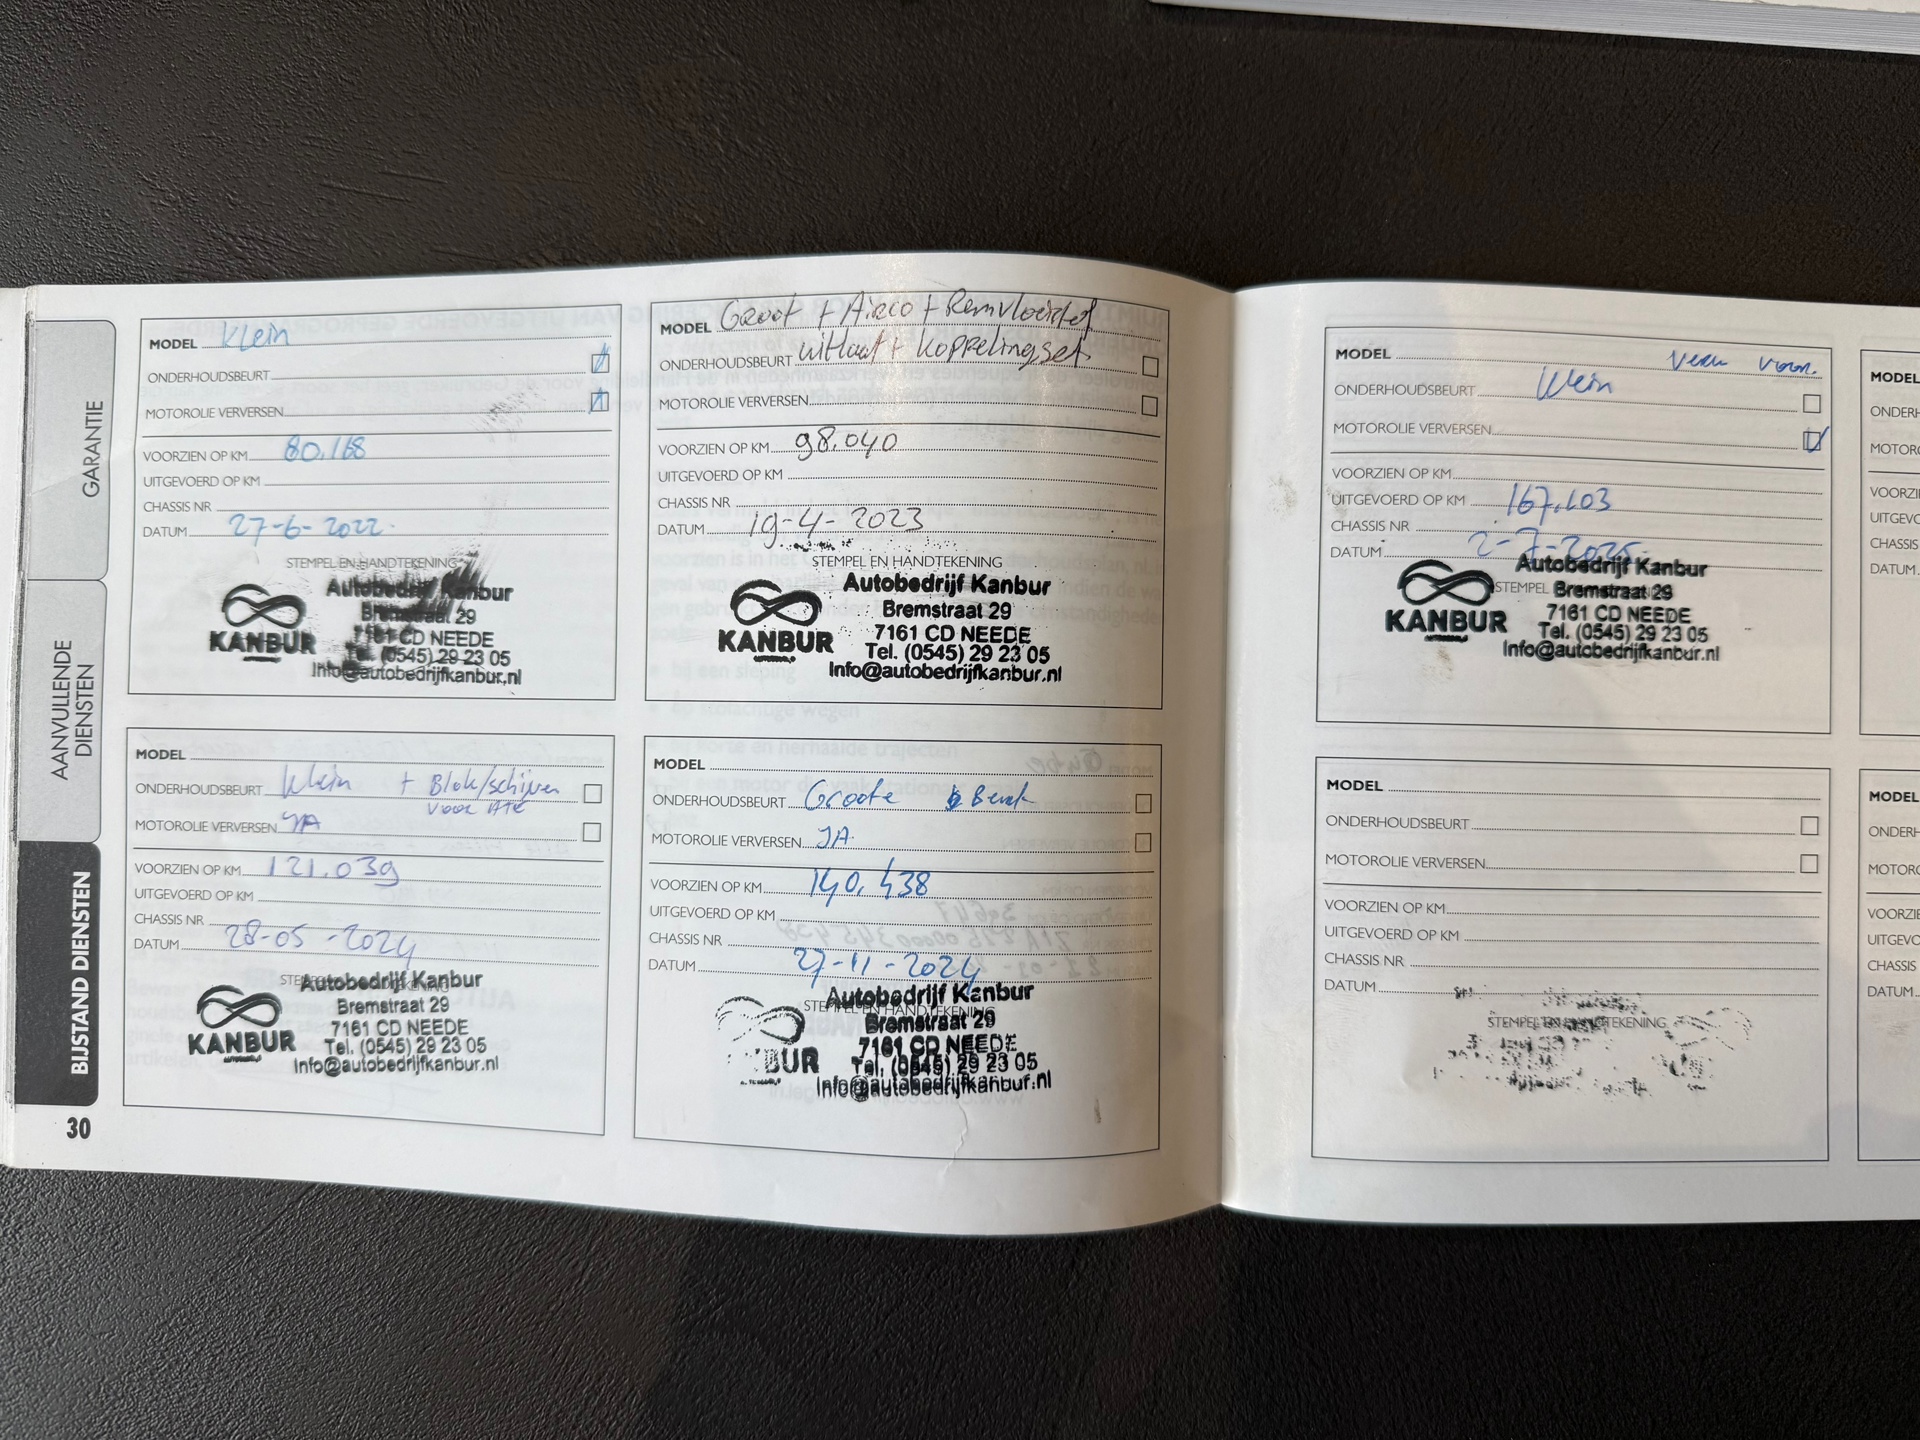 GARANTIE
AANVULLENDE
DIENSTEN
BIJSTAND DIENSTEN
30
MODEL Klein
ONDERHOUDSBEURT
MOTOROLIE VERVERSEN
VOORZIEN OP KM 80.168
UITGEVOERD OP KM
CHASSIS NR
DATUM 27-6-2022
STEMPEL EN HANDTEKENING
Autobedrijf Kanbur
Bremstraat 29
7161 CD NEEDE
Tel. (0545) 29 23 05
Info@autobedrijfkanbur.nl
KANBUR
MODEL Groot + Airco + Remvloeistof
ONDERHOUDSBEURT uitlaat + koppelingset
MOTOROLIE VERVERSEN
VOORZIEN OP KM 98.040
UITGEVOERD OP KM
CHASSIS NR
DATUM 19-4-2023
STEMPEL EN HANDTEKENING
Autobedrijf Kanbur
Bremstraat 29
7161 CD NEEDE
Tel. (0545) 29 23 05
Info@autobedrijfkanbur.nl
KANBUR
MODEL
ONDERHOUDSBEURT Klein + Blok/schijven
voor ATE
MOTOROLIE VERVERSEN JA
VOORZIEN OP KM 121.039
UITGEVOERD OP KM
CHASSIS NR
DATUM 28-05-2024
Autobedrijf Kanbur
Bremstraat 29
7161 CD NEEDE
Tel. (0545) 29 23 05
Info@autobedrijfkanbur.nl
KANBUR
MODEL
ONDERHOUDSBEURT Groote Beurt
MOTOROLIE VERVERSEN JA
VOORZIEN OP KM 140.438
UITGEVOERD OP KM
CHASSIS NR
DATUM 27-11-2024
STEMPEL EN HANDTEKENING
Autobedrijf Kanbur
Bremstraat 29
7161 CD NEEDE
Tel. (0545) 29 23 05
Info@autobedrijfkanbur.nl
BUR
MODEL voor.
ONDERHOUDSBEURT Klein
MOTOROLIE VERVERSEN
VOORZIEN OP KM
UITGEVOERD OP KM 167.103
CHASSIS NR
DATUM 2-7-2025
STEMPEL
Autobedrijf Kanbur
Bremstraat 29
7161 CD NEEDE
Tel. (0545) 29 23 05
Info@autobedrijfkanbur.nl
KANBUR
MODEL
ONDERHOUDSBEURT
MOTOROLIE VERVERSEN
VOORZIEN OP KM
UITGEVOERD OP KM
CHASSIS NR
DATUM
STEMPEL EN HANDTEKENING
MODEL
ONDERH
MOTORO
VOORZIE
UITGEVO
CHASSIS
DATUM
MODEL
ONDERH
MOTORO
VOORZIE
UITGEVO
CHASSIS
DATUM